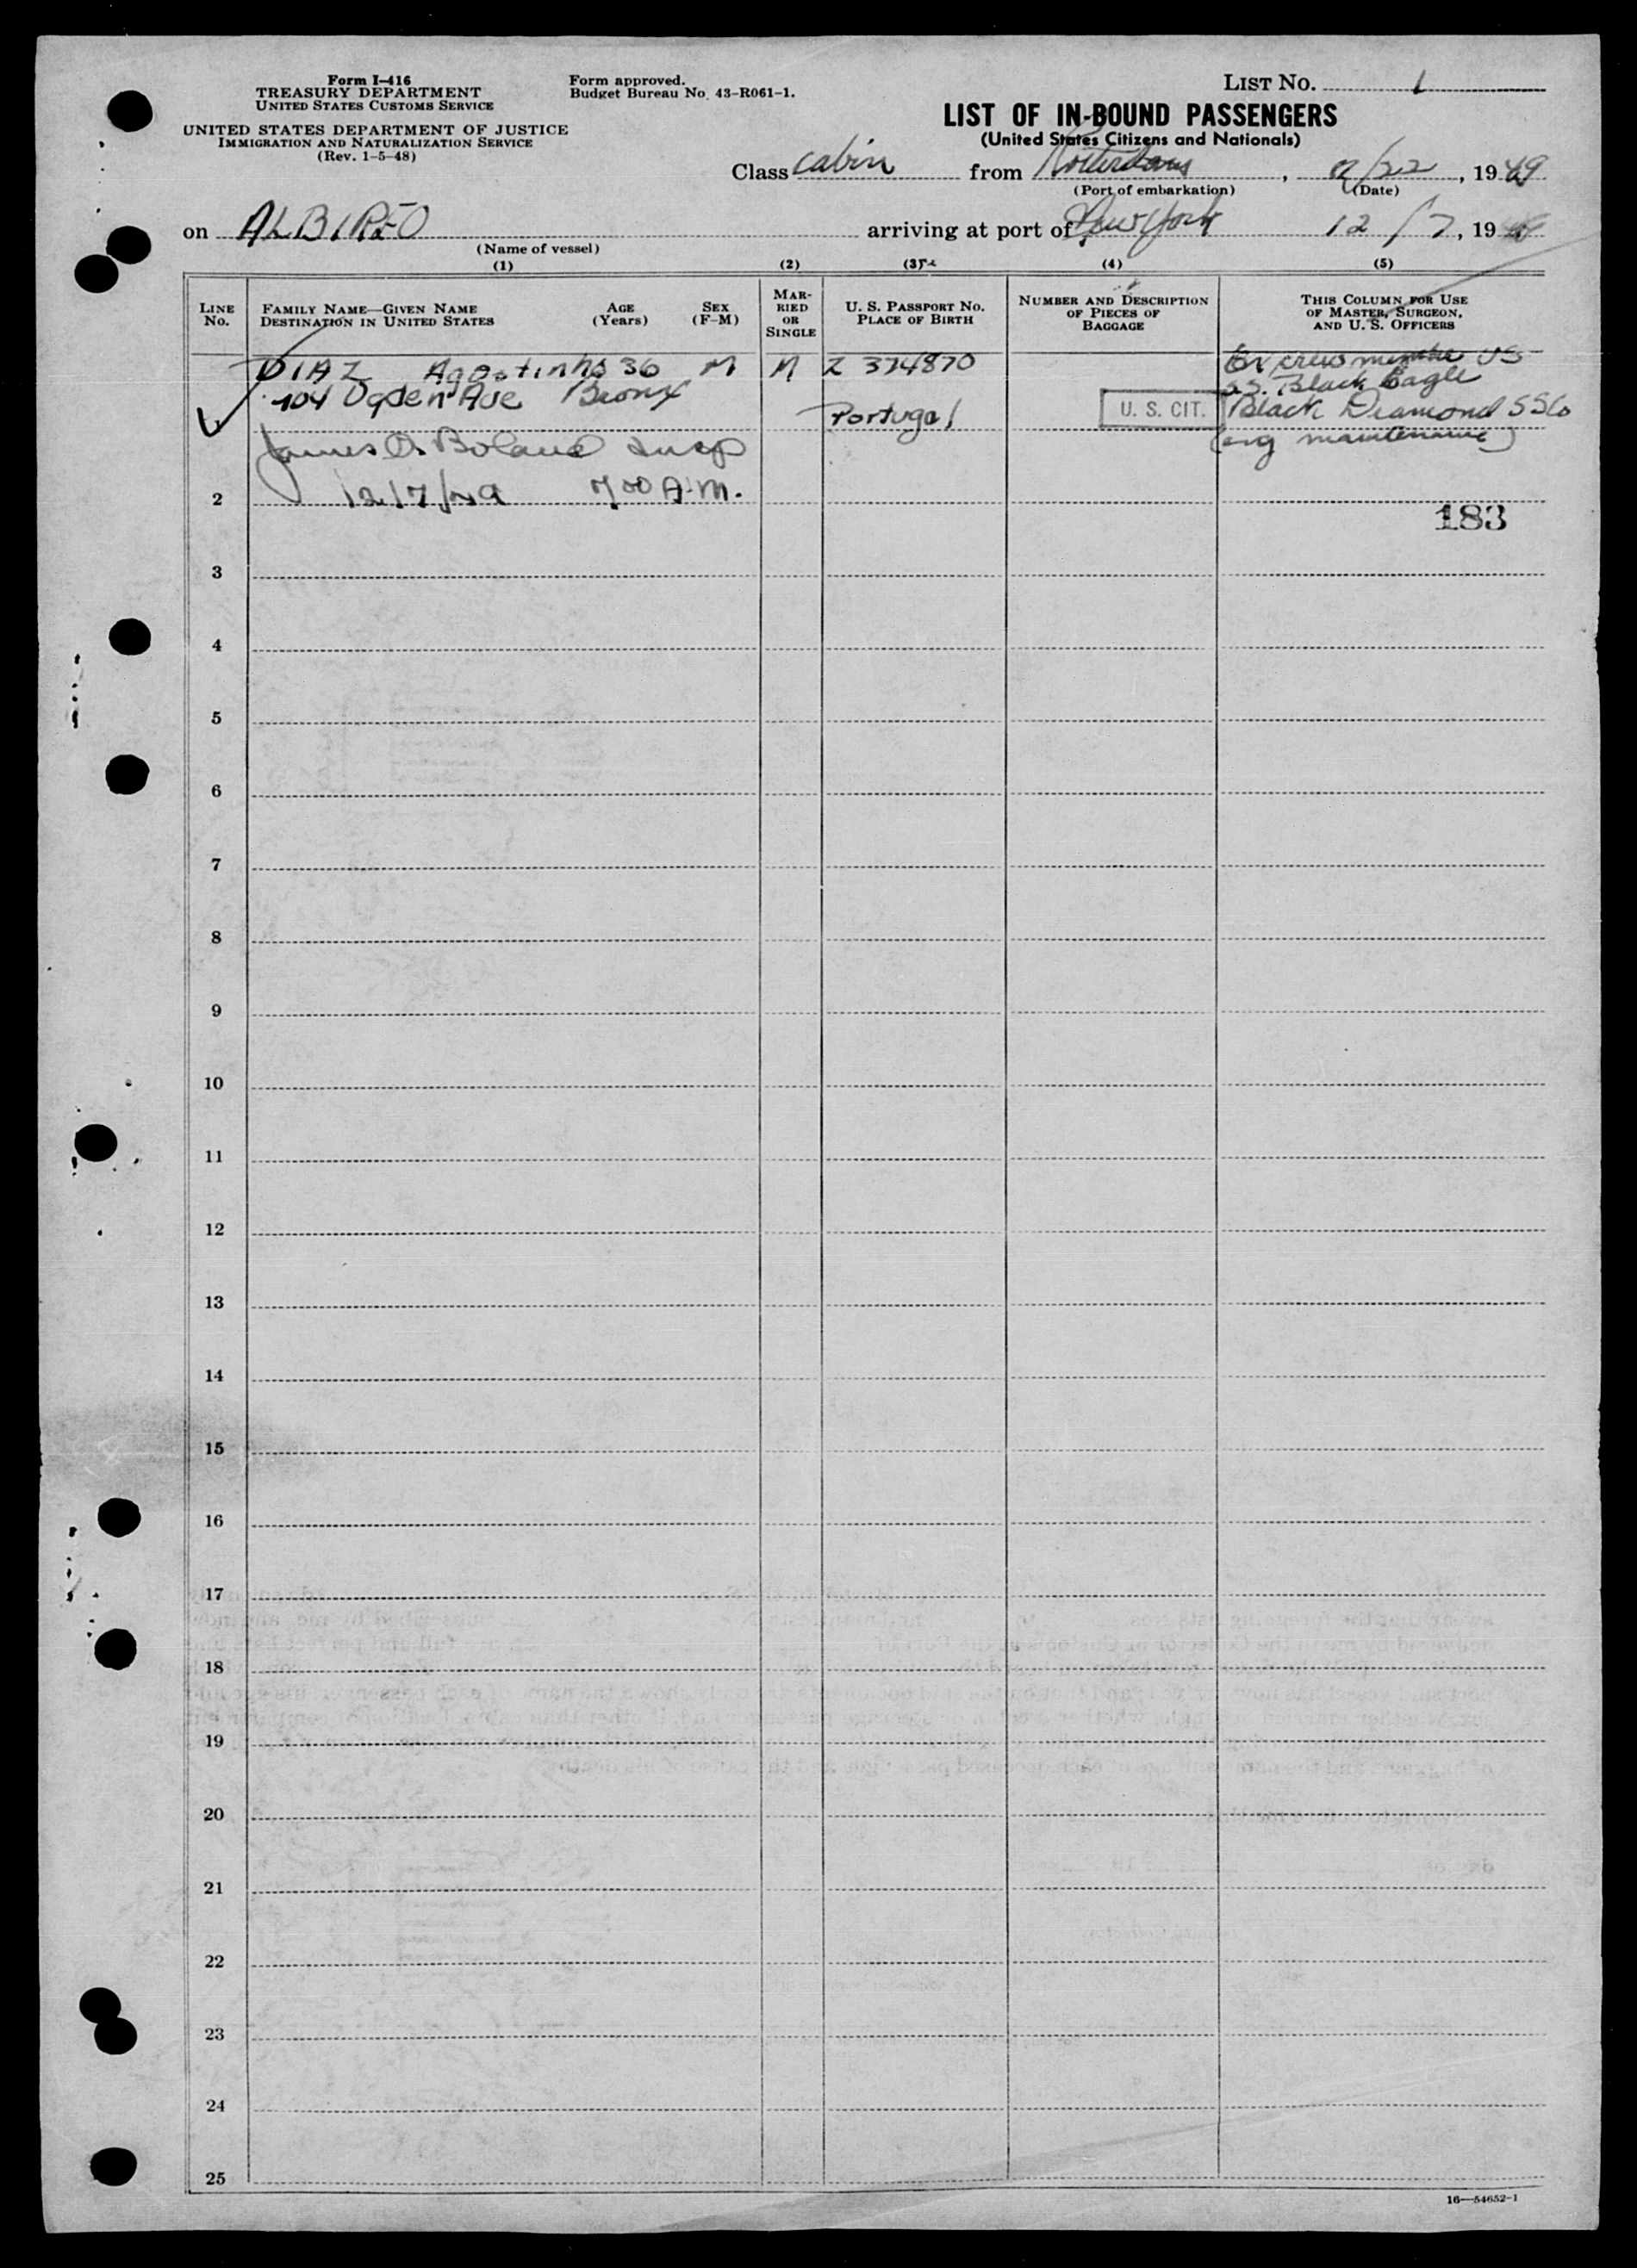 Form I-416
TREASURY DEPARTMENT
UNITED STATES CUSTOMS SERVICE
UNITED STATES DEPARTMENT OF JUSTICE
IMMIGRATION AND NATURALIZATION SERVICE
(Rev. 1-5-48)
Form approved.
Budget Bureau No. 43-R061-1.
LIST NO. 1
LIST OF IN-BOUND PASSENGERS
(United States Citizens and Nationals)
Class cabin from Rotterdam, /22, 1949
(Port of embarkation) (Date)
on ALBIREO arriving at port of New York 12/7, 19
(Name of vessel)
(1) (2) (3) (4) (5)
LINE No. FAMILY NAME—GIVEN NAME DESTINATION IN UNITED STATES AGE (Years) SEX (F-M) MARRIED OR SINGLE U. S. PASSPORT NO. PLACE OF BIRTH NUMBER AND DESCRIPTION OF PIECES OF BAGGAGE THIS COLUMN FOR USE OF MASTER, SURGEON, AND U. S. OFFICERS
DIAZ Agostinho 36 M M Z 374870 Ex crew member US
SS. Black Eagle
104 Ogden Ave Bronx Portugal U. S. CIT. Black Diamond SSCo
James A. Boland Insp
2 12/7/49 7 00 A.M.
183
3
4
5
6
7
8
9
10
11
12
13
14
15
16
17
18
19
20
21
22
23
24
25
16—54652-1